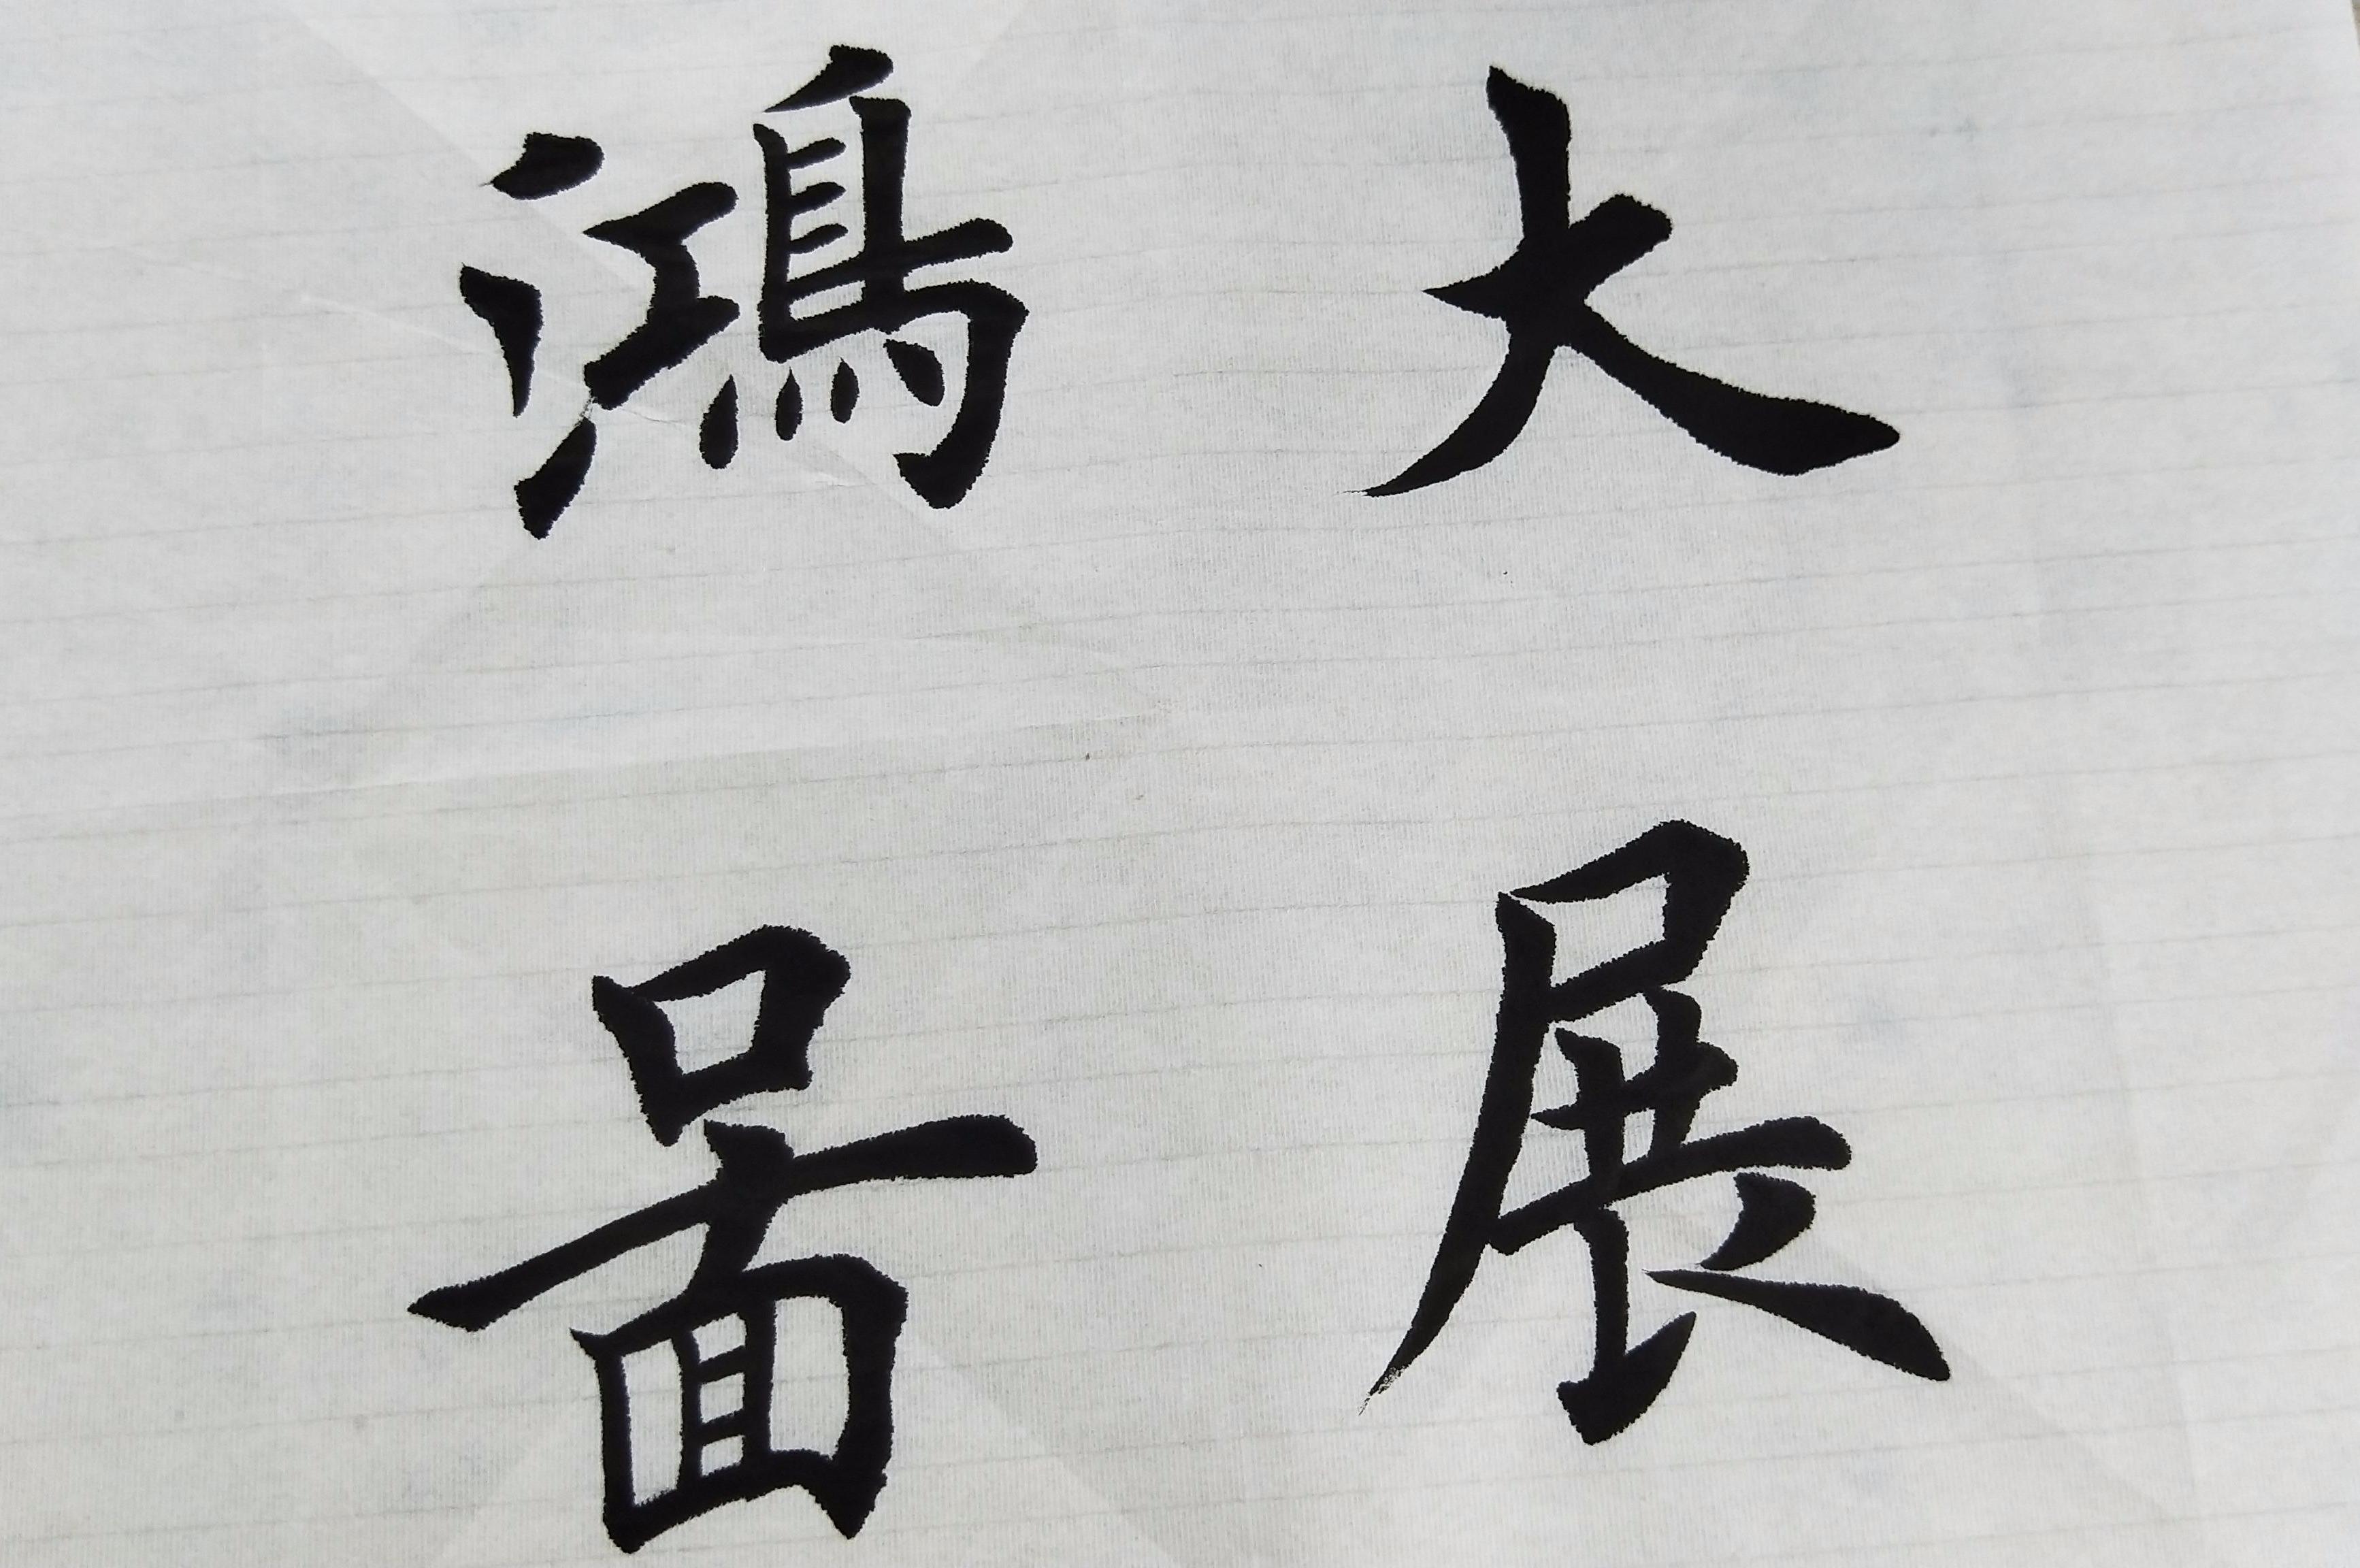 大展
鴻啚